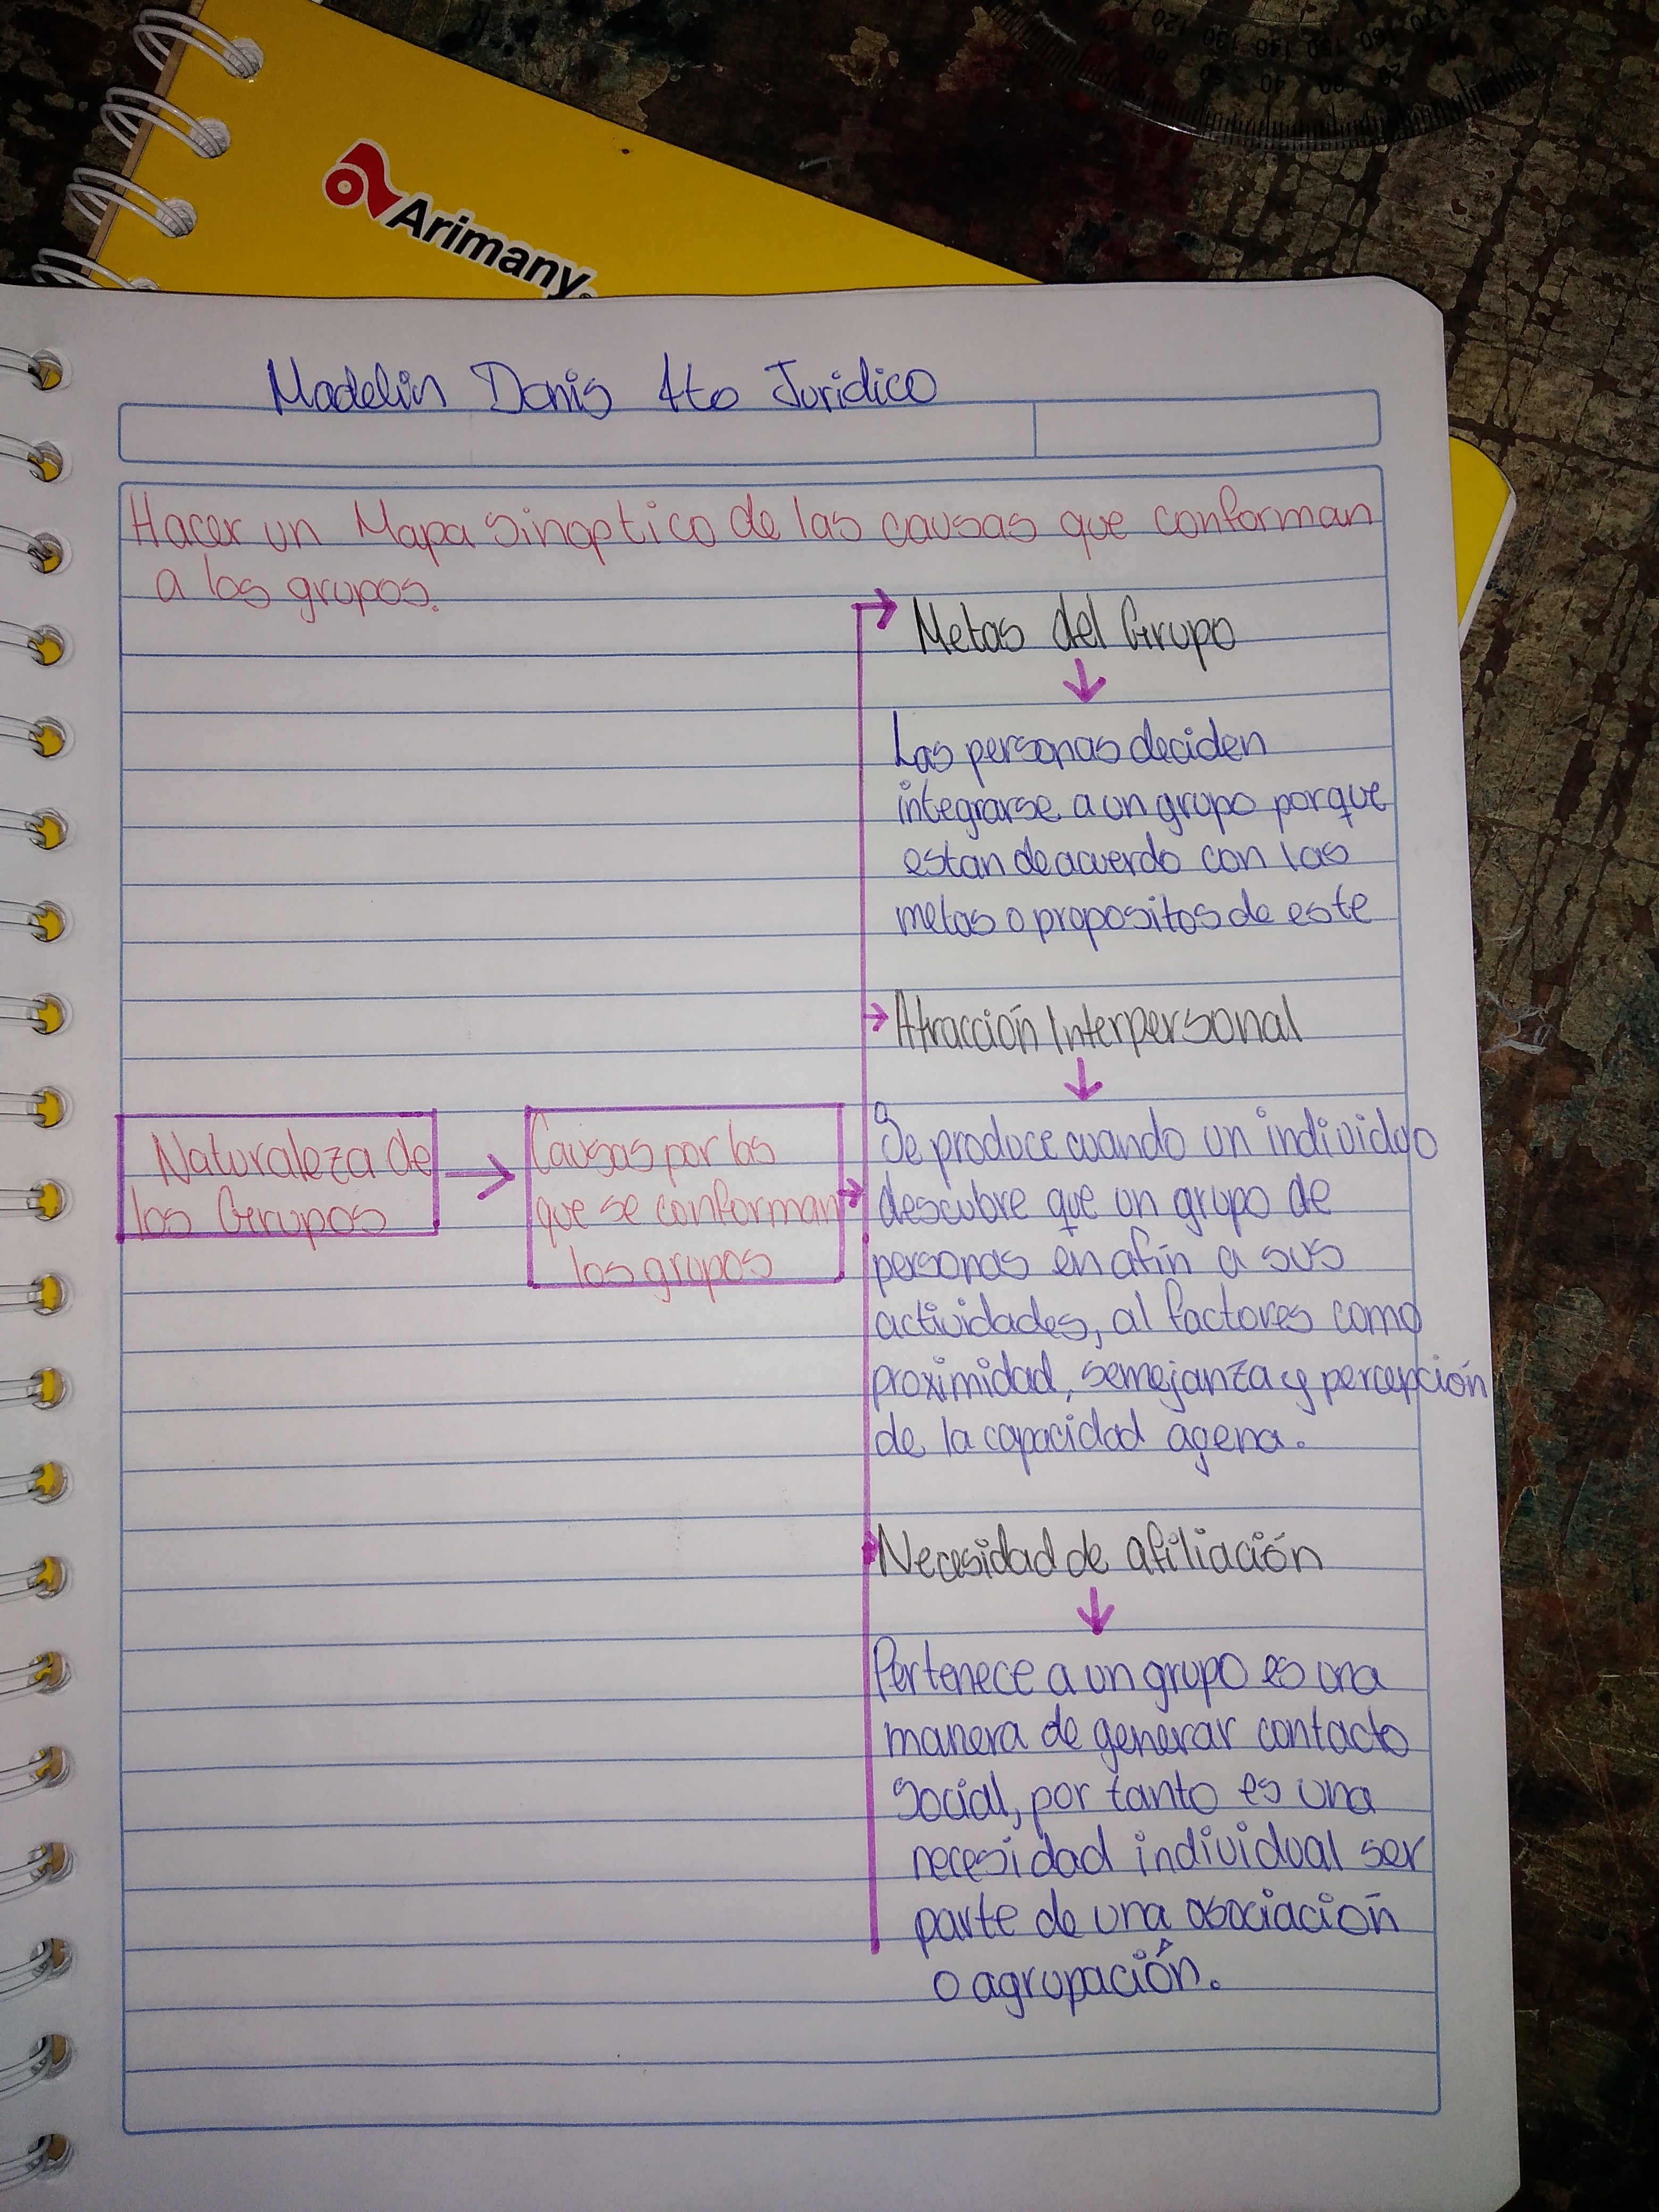 Arimany
Madelin Donis 4to Juridico
Hacer un Mapa sinoptico de las causas que conforman
a los grupos.
Naturaleza de
los Grupos
Causas por las
que se conforman
los grupos
Metas del Grupo
Las personas deciden
integrarse a un grupo porque
estan de acuerdo con las
metas o propositos de este
Atracción Interpersonal
Se produce cuando un individuo
descubre que un grupo de
personas en afín a sus
actividades, al factores como
proximidad, semejanza y percepción
de la capacidad agena.
Necesidad de afiliación
Pertenece a un grupo es una
manera de generar contacto
social, por tanto es una
necesidad individual ser
parte de una asociación
o agrupación.